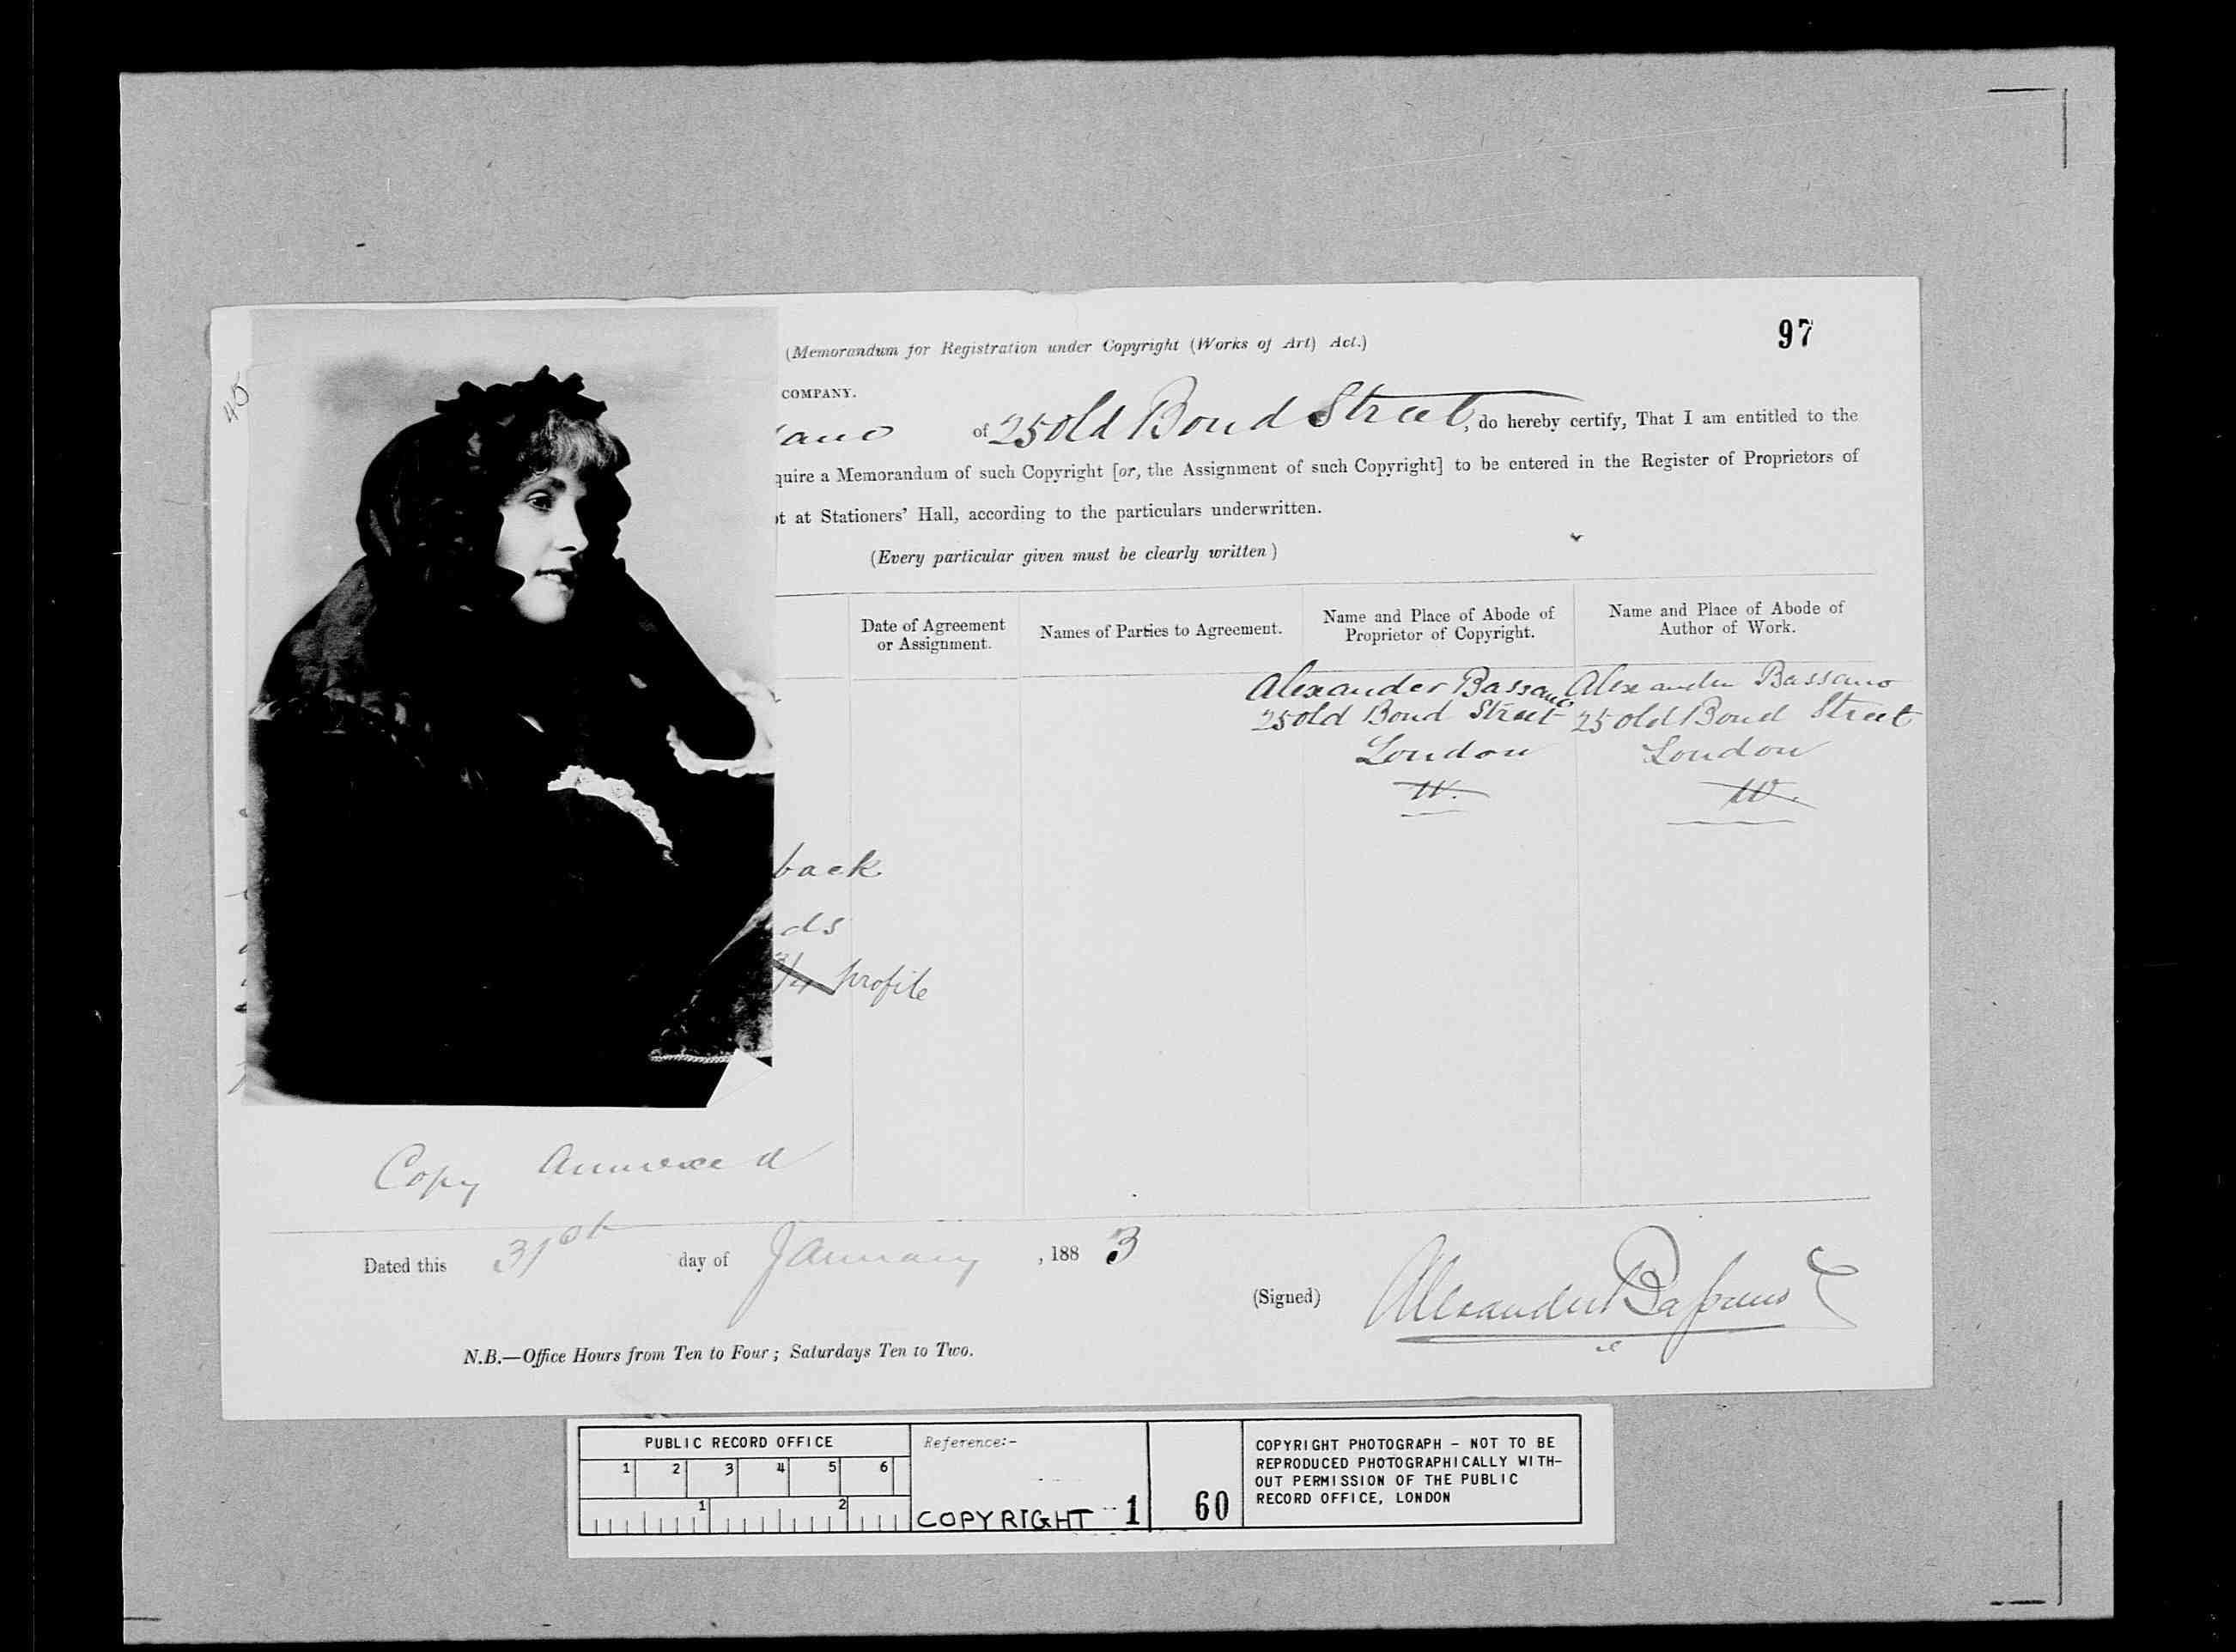 97
(Memorandum for Registration under Copyright (Works of Art) Act.)
45
COMPANY.
ano of 25 Old Bond Street, do hereby certify, That I am entitled to the
quire a Memorandum of such Copyright [or, the Assignment of such Copyright] to be entered in the Register of Proprietors of
t at Stationers' Hall, according to the particulars underwritten.
(Every particular given must be clearly written)
Date of Agreement or Assignment.
Names of Parties to Agreement.
Name and Place of Abode of Proprietor of Copyright.
Name and Place of Abode of Author of Work.
Alexander Bassano
25 Old Bond Street
London
W.
Alexander Bassano
25 Old Bond Street
London
W.
back
ds
3/4 profile
Copy annexed
Dated this 31st day of January, 1883
(Signed) Alexander Bassano
N.B.—Office Hours from Ten to Four; Saturdays Ten to Two.
PUBLIC RECORD OFFICE
1 2 3 4 5 6
1 2
Reference:-
COPYRIGHT 1 60
COPYRIGHT PHOTOGRAPH - NOT TO BE
REPRODUCED PHOTOGRAPHICALLY WITH-
OUT PERMISSION OF THE PUBLIC
RECORD OFFICE, LONDON